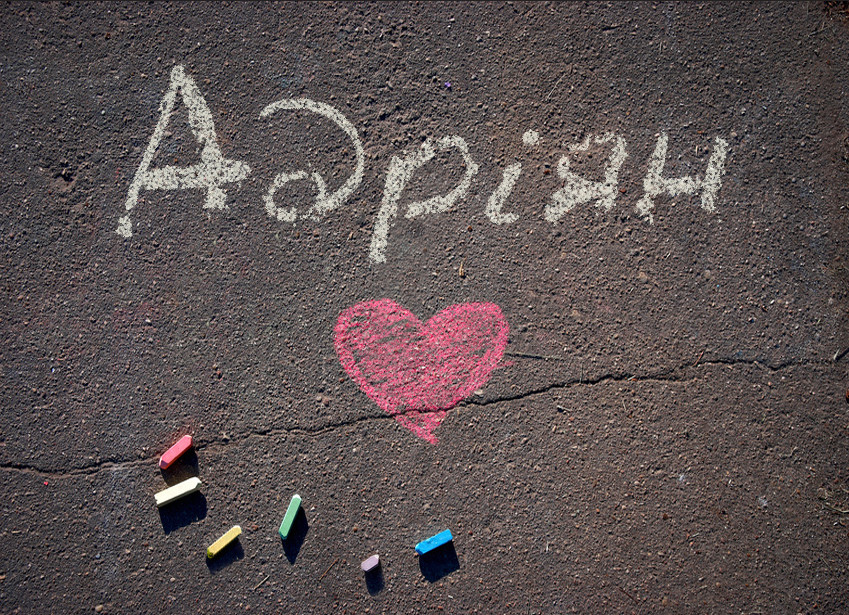 Адріян